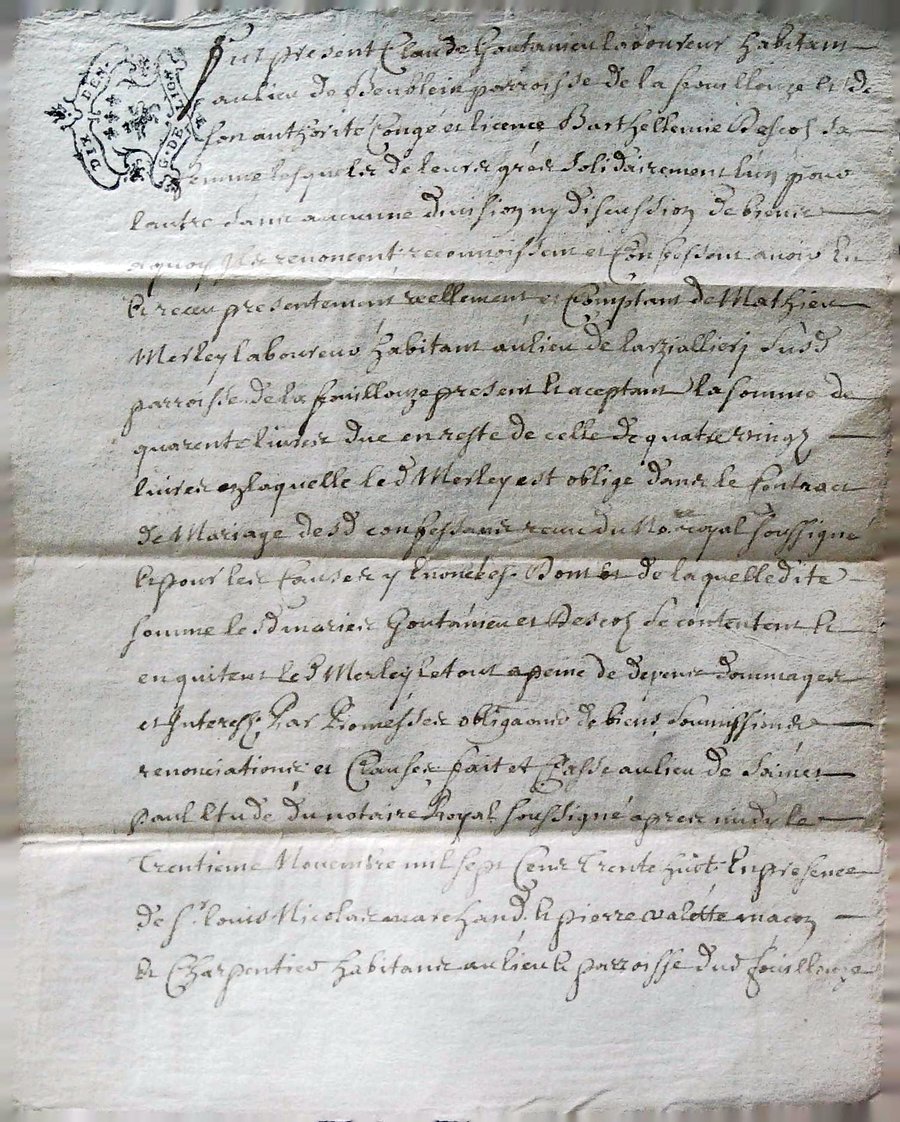 DIX DEN.
G. DE
Fut present Claude Goutanieu laboureur habitant
au lieu de parroisse de la fouillouze et de
son authorité Congé et licence Barthellemie Descos sa
femme lesquels de leurs grés solidairement l'un pour
l'autre sans aucunne division ny discussion de biens
a quoy ils renoncent reconnoissent et Confessent avoir eu
et receu presentement reellement et Comptant de Mathieu
Merley laboureur habitant au lieu de susd
parroisse de la fouillouze present et aceptant la somme de
quarente livres due en reste de celle de quatre vingt
livres en laquelle le d Merley est obligé dans le Contract
de Mariage desd confessans receu du No.re royal soussigné
et pour les Causes y Enoncées. Dont et de laquelle dite
somme les d mariés Goutanieu et Descos se contentent et
en quitent le d Merley le tout a peine de depens dommages
et Interests Par Promesses obligaons de biens soumissions
renonciations et Clauses fait et Passé au lieu de Saint
paul Etude du notaire Royal soussigné apres midy le
Trentieme Novembre mil sept Cens trente huit En presence
de Sr. louis Nicolas marchand et pierre valette macon
et Charpentier habitans au lieu et parroisse dud fouillouze